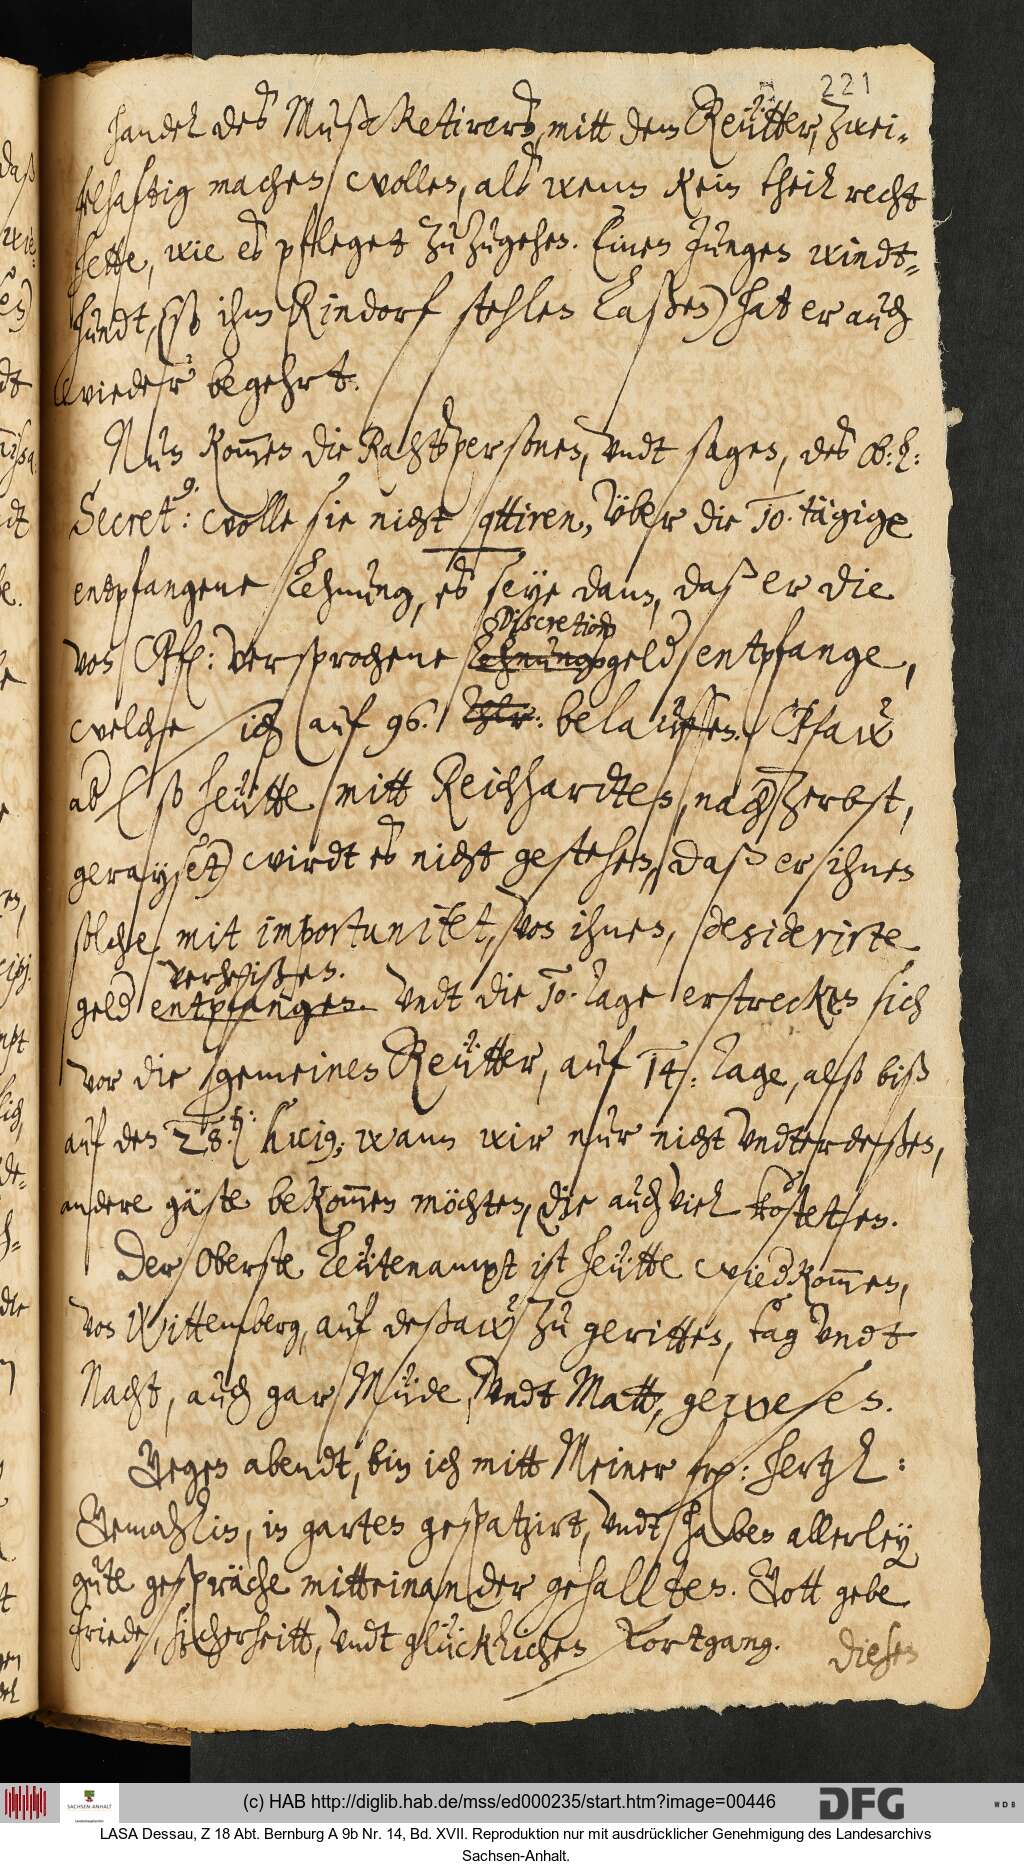 221
handel des Musketirers, mitt dem Reütter, zwei-
felhaftig machen wollen, als wenn kein theil recht
hette, wie es pfleget zu zugehen. Einen Jungen windt-
hundt, (so ihm Rindorf stehlen laßen) hat er auch
wieder begehrt.
Nun kommen die Rahtspersonen, undt sagen, des Ob: L:
Secret: wolle sie nicht qttiren, über die 10. tägige
entpfangene Lehnung, es seye dann, daß er die
von Pf: versprochene Lehnungs Discretion geld entpfange,
welche sich auf 96. Thlr: belauffen. Pfaw
ab (so heütte mitt Reichhardten, nach Zerbst,
gerayset) wirdt es nicht gestehen, daß er ihnen
solche, mit importunitet, von ihnen, desiderirte
geld entpfangen verheißen. Undt die 10. Tage erstrecken sich
vor die gemeinen Reütter, auf 14: Tage, alß biß
auf den 28. huius; wann wir nur nicht undterdeßen,
andere gäste bekommen möchten, die auch viel kosteten.
Der Oberste Leütenampt ist heütte wiedkommen,
von Wittemberg, auf deßaw zu geritten, tag undt
Nacht, auch gar Müde, undt Matt, gewesen.
Gegen abendt, bin ich mitt Meiner fr: hertzl:
Gemahlin, in garten gespatzirt, undt haben allerley
gute gespräche mitteinander gehallten. Gott gebe
friede, sicherheitt, undt glücklichen Fortgang.
dieses
(c) HAB http://diglib.hab.de/mss/ed000235/start.htm?image=00446
SACHSEN-ANHALT
DFG
WDB
LASA Dessau, Z 18 Abt. Bernburg A 9b Nr. 14, Bd. XVII. Reproduktion nur mit ausdrücklicher Genehmigung des Landesarchivs
Sachsen-Anhalt.